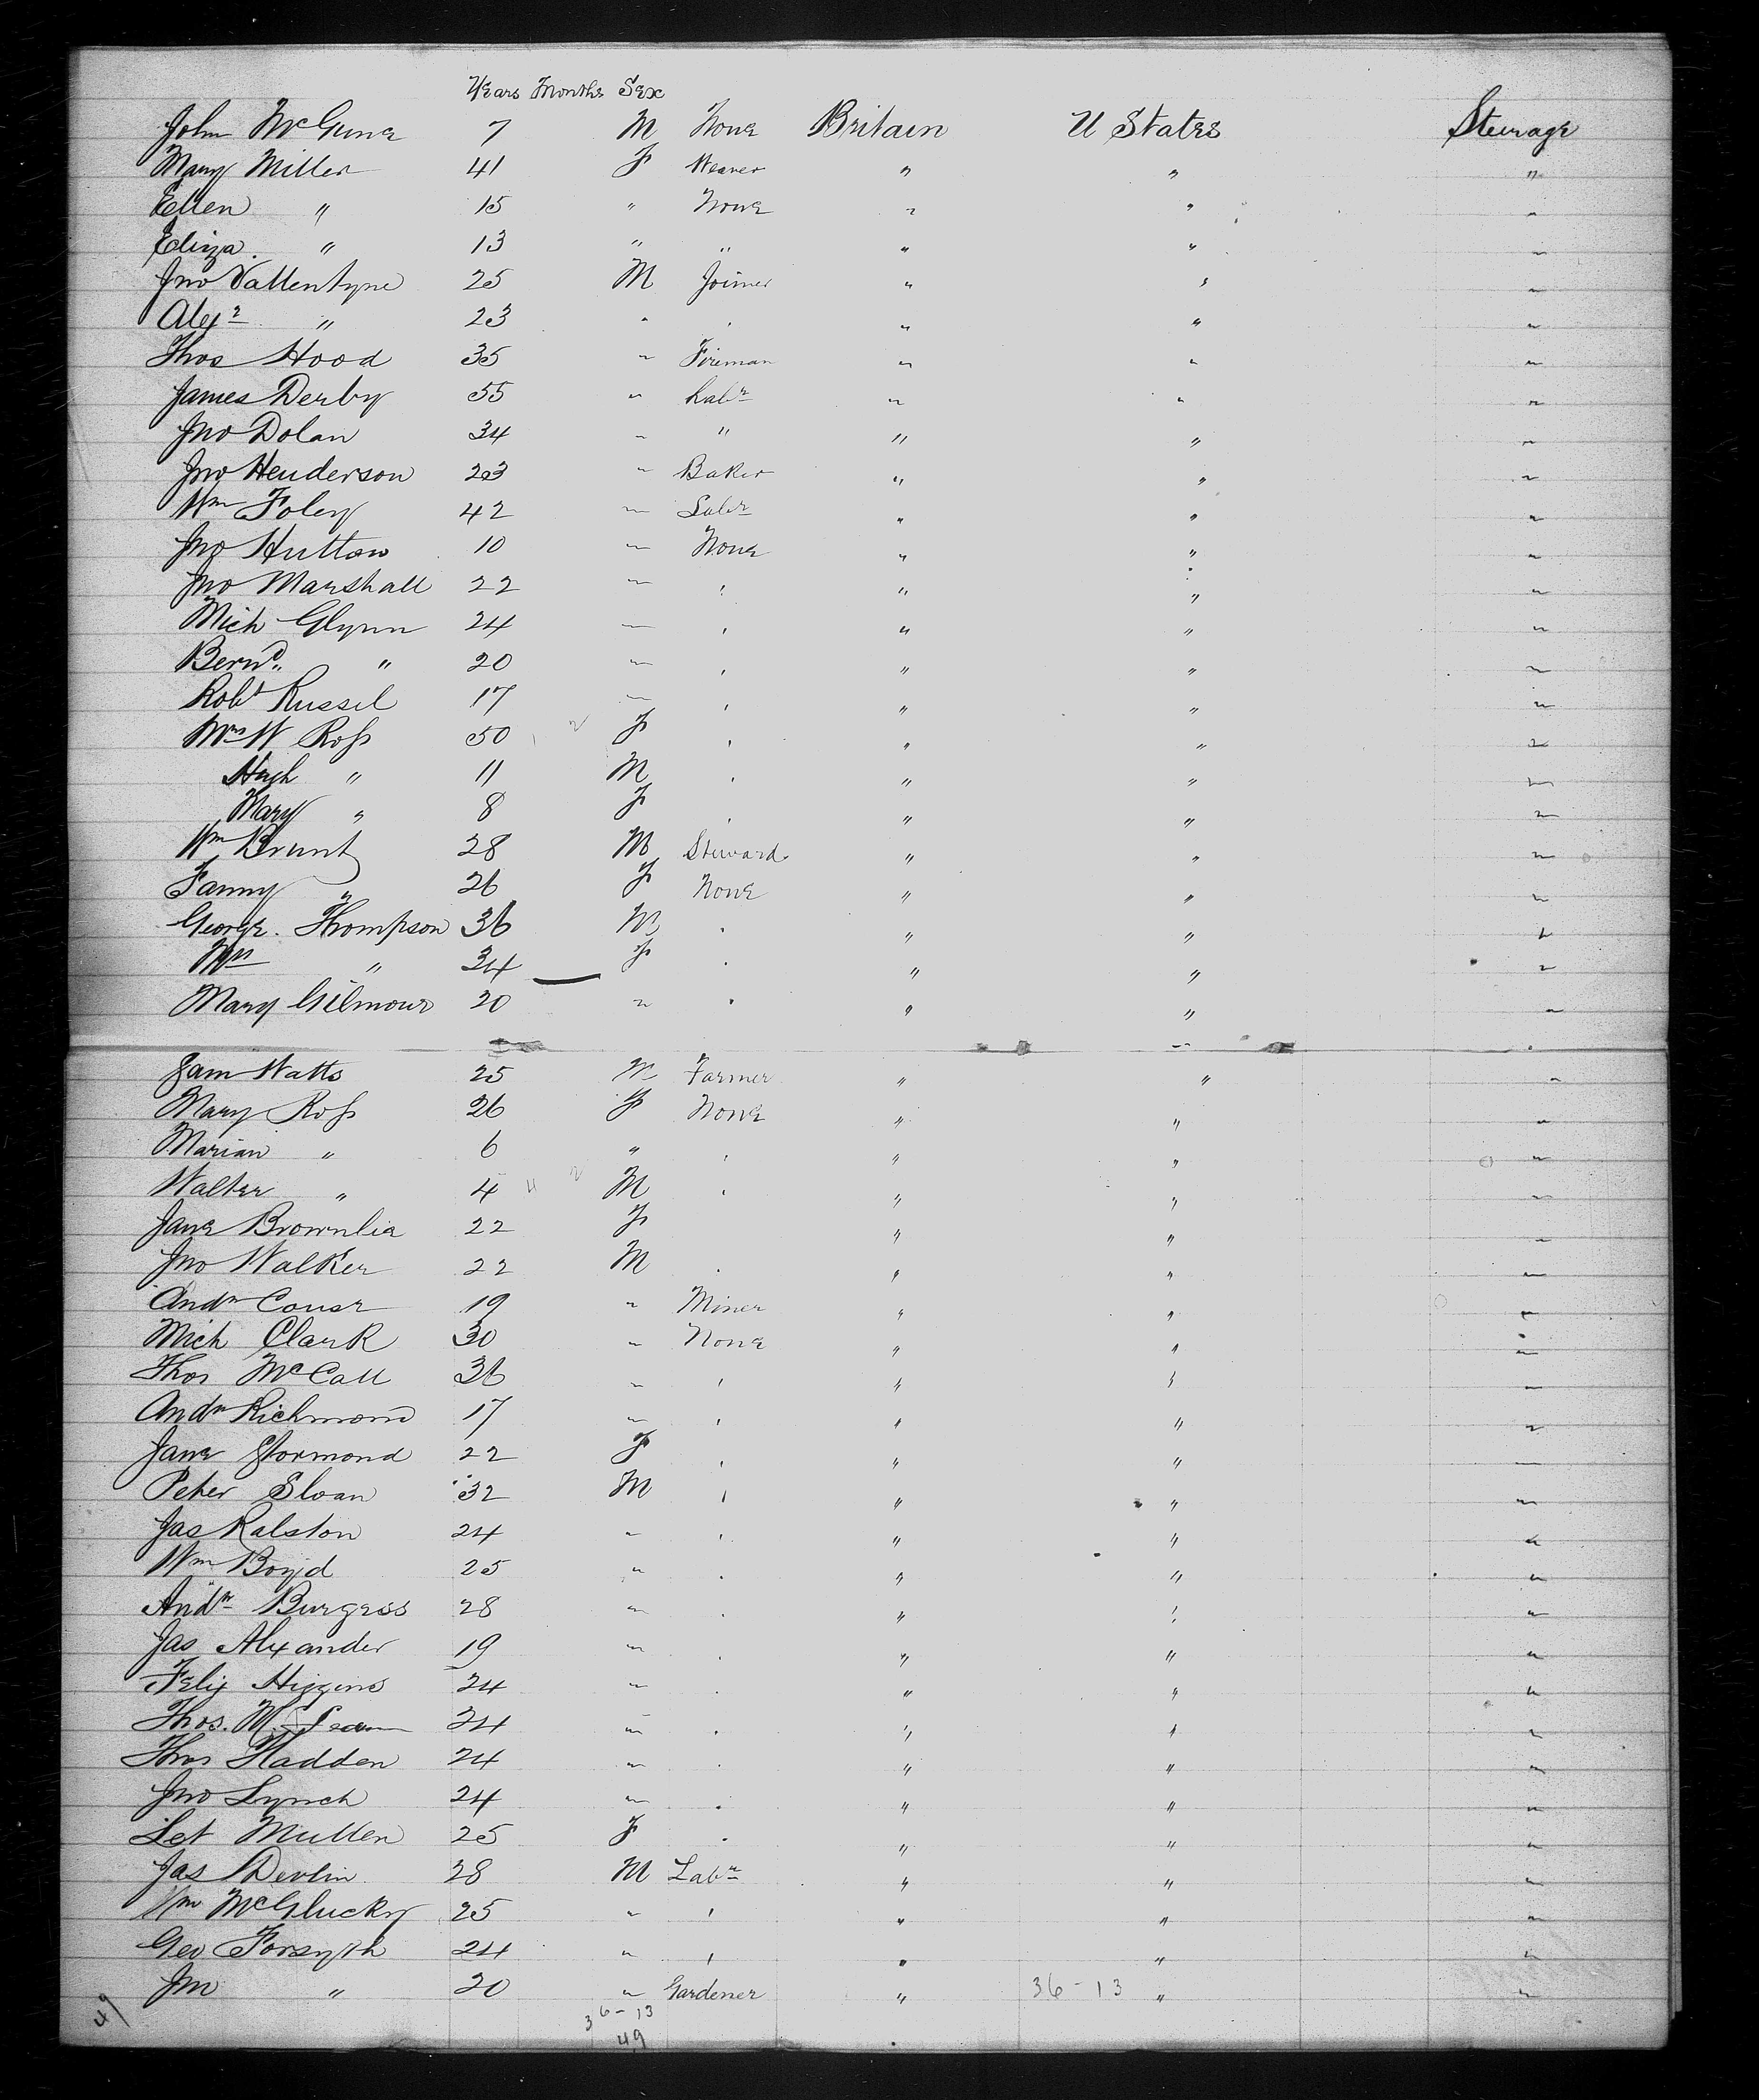 Years Months Sex
John McGune 7 M None Britain U States Steerage
Mary Miller 41 F Weaver " " "
Ellen " 15 " None " " "
Eliza " 13 " " " " "
Jno Vallentyne 25 M Joiner " " "
Alexr " 23 " " " " "
Thos Hood 35 " Fireman " " "
James Derby 55 " Labr " " "
Jno Dolan 34 " " " " "
Jno Henderson 23 " Baker " " "
Wm Foley 42 " Labr " " "
Jno Hutton 10 " None " " "
Jno Marshall 22 " " " " "
Mich Glynn 24 " " " " "
Bernd " 20 " " " " "
Robt Russel 17 " " " " "
Mrs W Ross 50 F " " " "
Hugh " 11 M " " " "
Mary " 8 F " " " "
Wm Brunt 28 M Steward " " "
Fanny " 26 F None " " "
George Thompson 36 M " " " "
Mrs " 34 F " " " "
Mary Gilmour 20 " " " " "
Sam Watts 25 M Farmer " " "
Mary Ross 26 F None " " "
Marian " 6 " " " " "
Walter " 4 M " " " "
Jane Brownlie 22 F " " "
Jno Walker 22 M " " " "
Andw Couser 19 " Miner " " "
Mich Clark 30 " None " " "
Thos McCall 36 " " " " "
Andw Richmond 17 " " " " "
Jane Stormond 22 F " " " "
Peter Sloan 32 M " " " "
Jas Ralston 24 " " " " "
Wm Boyd 25 " " " " "
Andw Burgess 28 " " " " "
Jas Alexander 19 " " " " "
Felix Higgins 24 " " " " "
Thos. 24 " " " " "
Thos Hadden 24 " " " " "
Jno Lynch 24 " " " " "
Let Mullen 25 F " " " "
Jas Devlin 28 M Labr " " "
Wm McGlucky 25 " " " " "
Geo Forsyth 24 " " " " "
Jno " 20 " Gardener " 36-13 " "
49 36-13
49